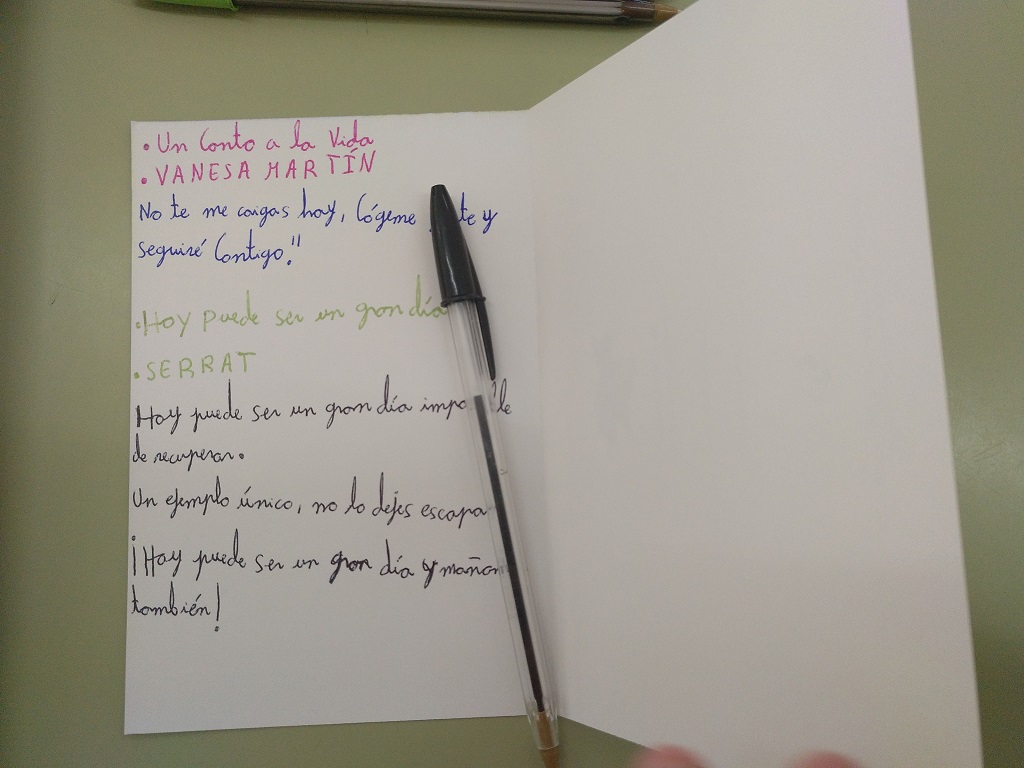 • Un Canto a la Vida
• VANESA MARTÍN
No te me caigas hoy, Cógeme y
seguiré Contigo!!
• Hoy puede ser un gran día
• SERRAT
Hoy puede ser un gran día
de recuperar.
Un ejemplo único, no lo dejes
¡Hoy puede ser un gran día y
también!